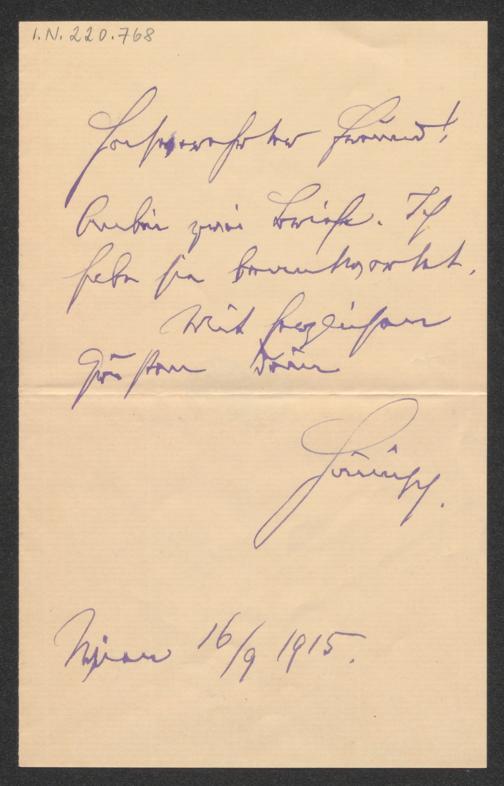 I.N. 220.768
Hochverehrter Freund!
Anbei zwei Briefe. Ich
habe sie beantwortet.
Mit herzlichen
Grüßen Dein
Wien 16/9 1915.